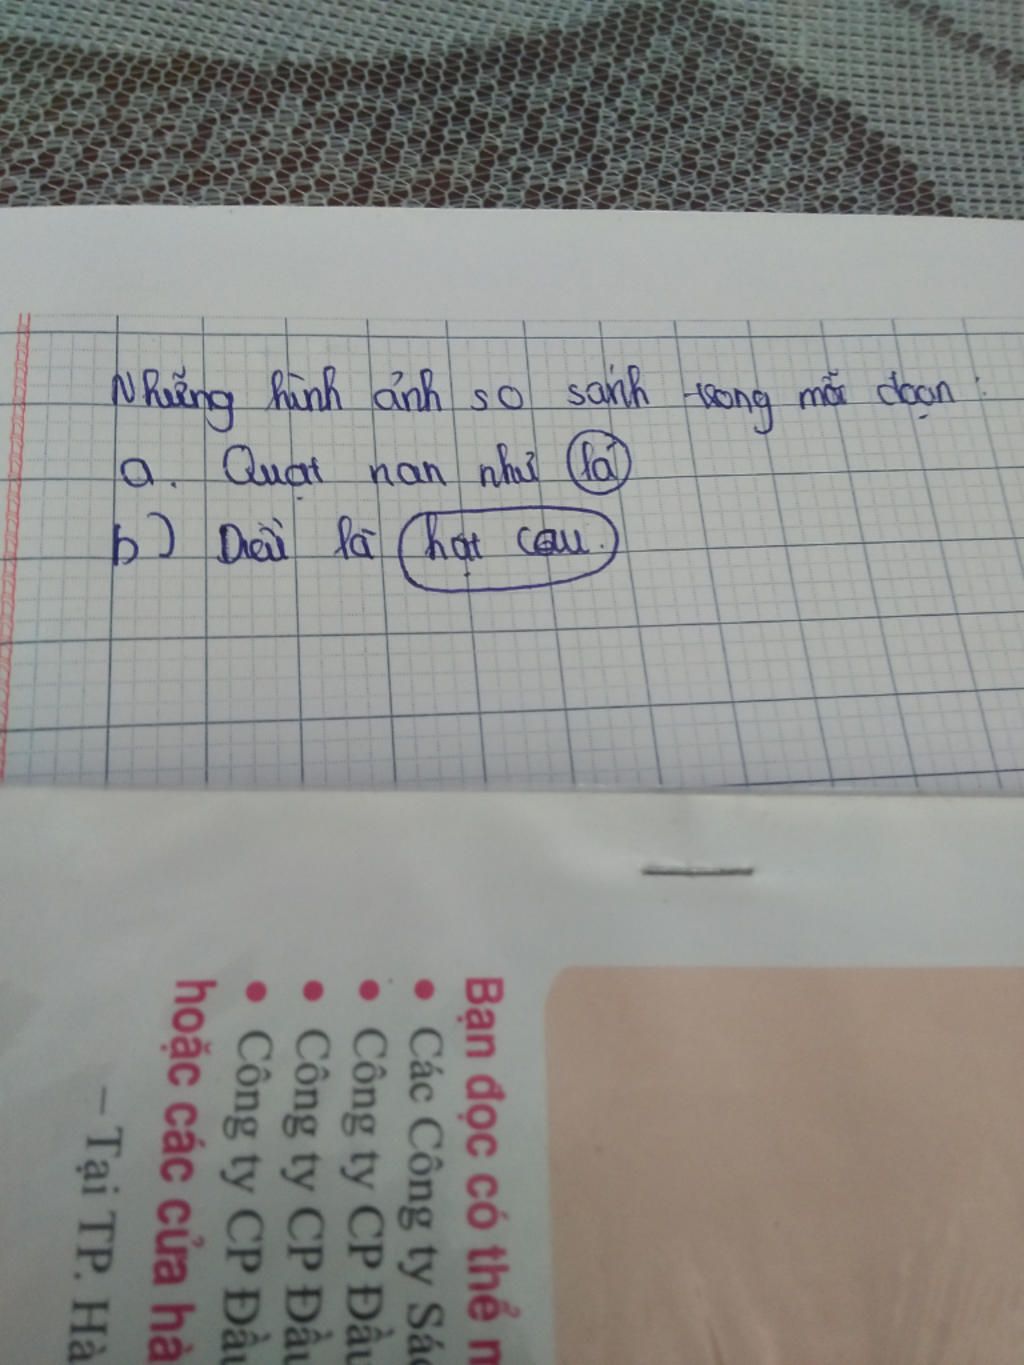 Những hình ảnh so sánh trong mỗi đoạn:
a. Quạt nan như lá
b) Diều là hạt cau.
Bạn đọc có thể m
• Các Công ty Sác
• Công ty CP Đầu
• Công ty CP Đầu
• Công ty CP Đầu
hoặc các cửa hà
– Tại TP. Hà